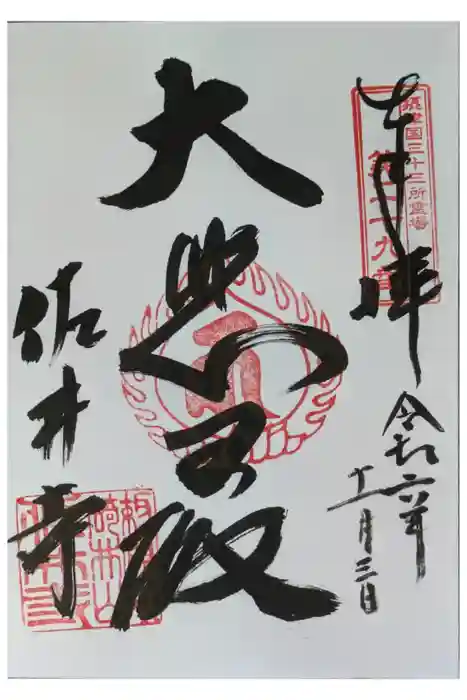 摂津国三十三所霊場
第二十九番
奉拝
令和六年
十一月三日
大悲殿
佐井寺